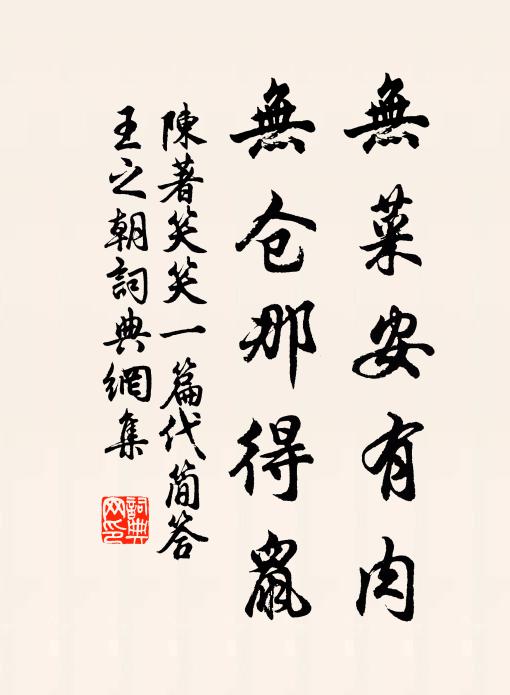 無菜安有肉
無仓那得鼠
陳著笑笑一篇代简答
王之朝詞典網集
詞典
网印